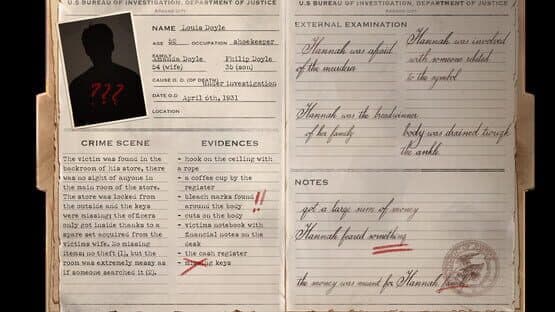 U.S BUREAU OF INVESTIGATION, DEPARTMENT OF JUSTICE
???
NAME Louis Doyle
AGE OCCUPATION shoekeeper
FAMILY
Amanda Doyle Philip Doyle
54 (wife) 35 (son)
CAUSE O. D. (OF DEATH) Under investigation
DATE O.D April 6th, 1931
LOCATION
CRIME SCENE
The victim was found in the
backroom of his store, there
was no sight of anyone in
the main room of the store.
The store was locked from
the outside and the keys
were missing; the oficers
only got inside thanks to a
spare set acquired from the
victims wife. No missing
items; no theft (1), but the
room was extremely messy as
if someone searched it (2).
EVIDENCES
- hook on the ceiling with
a rope
- a coffee cup by the
register
- bleach marks found !!
around the body
- cuts on the body
- victims notebook with
financial notes on the
desk
- the cash register
- missing keys
U.S BUREAU OF INVESTIGATION, DEPARTMENT OF JUSTICE
EXTERNAL EXAMINATION
Hannah was afraid
of the
Hannah was involved
with someone related
to the symbol
Hannah was the breadwinner
of her family
body was drained trough
the ankle
NOTES
got a large sum of money
Hannah feared something
the money was meant for Hannah